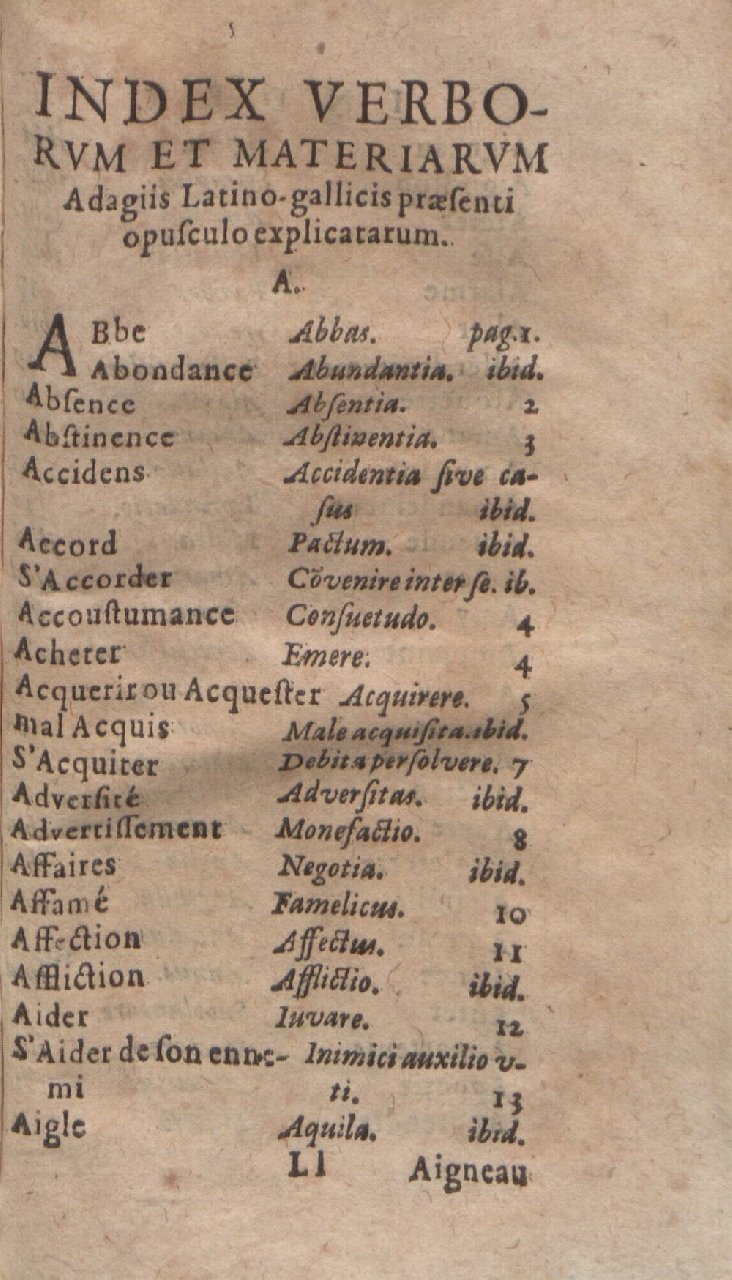 INDEX VERBO-
RVM ET MATERIARVM
Adagiis Latino-gallicis præſenti
opuſculo explicatarum.
A.
ABbe Abbas. pag.1.
Abondance Abundantia. ibid.
Abſence Abſentia. 2
Abſtinence Abſtinentia. 3
Accidens Accidentia ſive ca-
ſus ibid.
Accord Pactum. ibid.
S'Accorder Cõvenire inter ſe. ib.
Accouſtumance Conſuetudo. 4
Acheter Emere. 4
Acquerir ou Acqueſter Acquirere. 5
mal Acquis Male acquiſita. ibid.
S'Acquiter Debita perſolvere. 7
Adverſité Adverſitas. ibid.
Advertiſſement Monefactio. 8
Affaires Negotia. ibid.
Affamé Famelicus. 10
Affection Affectus. 11
Affliction Afflictio. ibid.
Aider Iuvare. 12
S'Aider de ſon enne- Inimici auxilio v-
mi ti. 13
Aigle Aquila. ibid.
Ll Aigneau